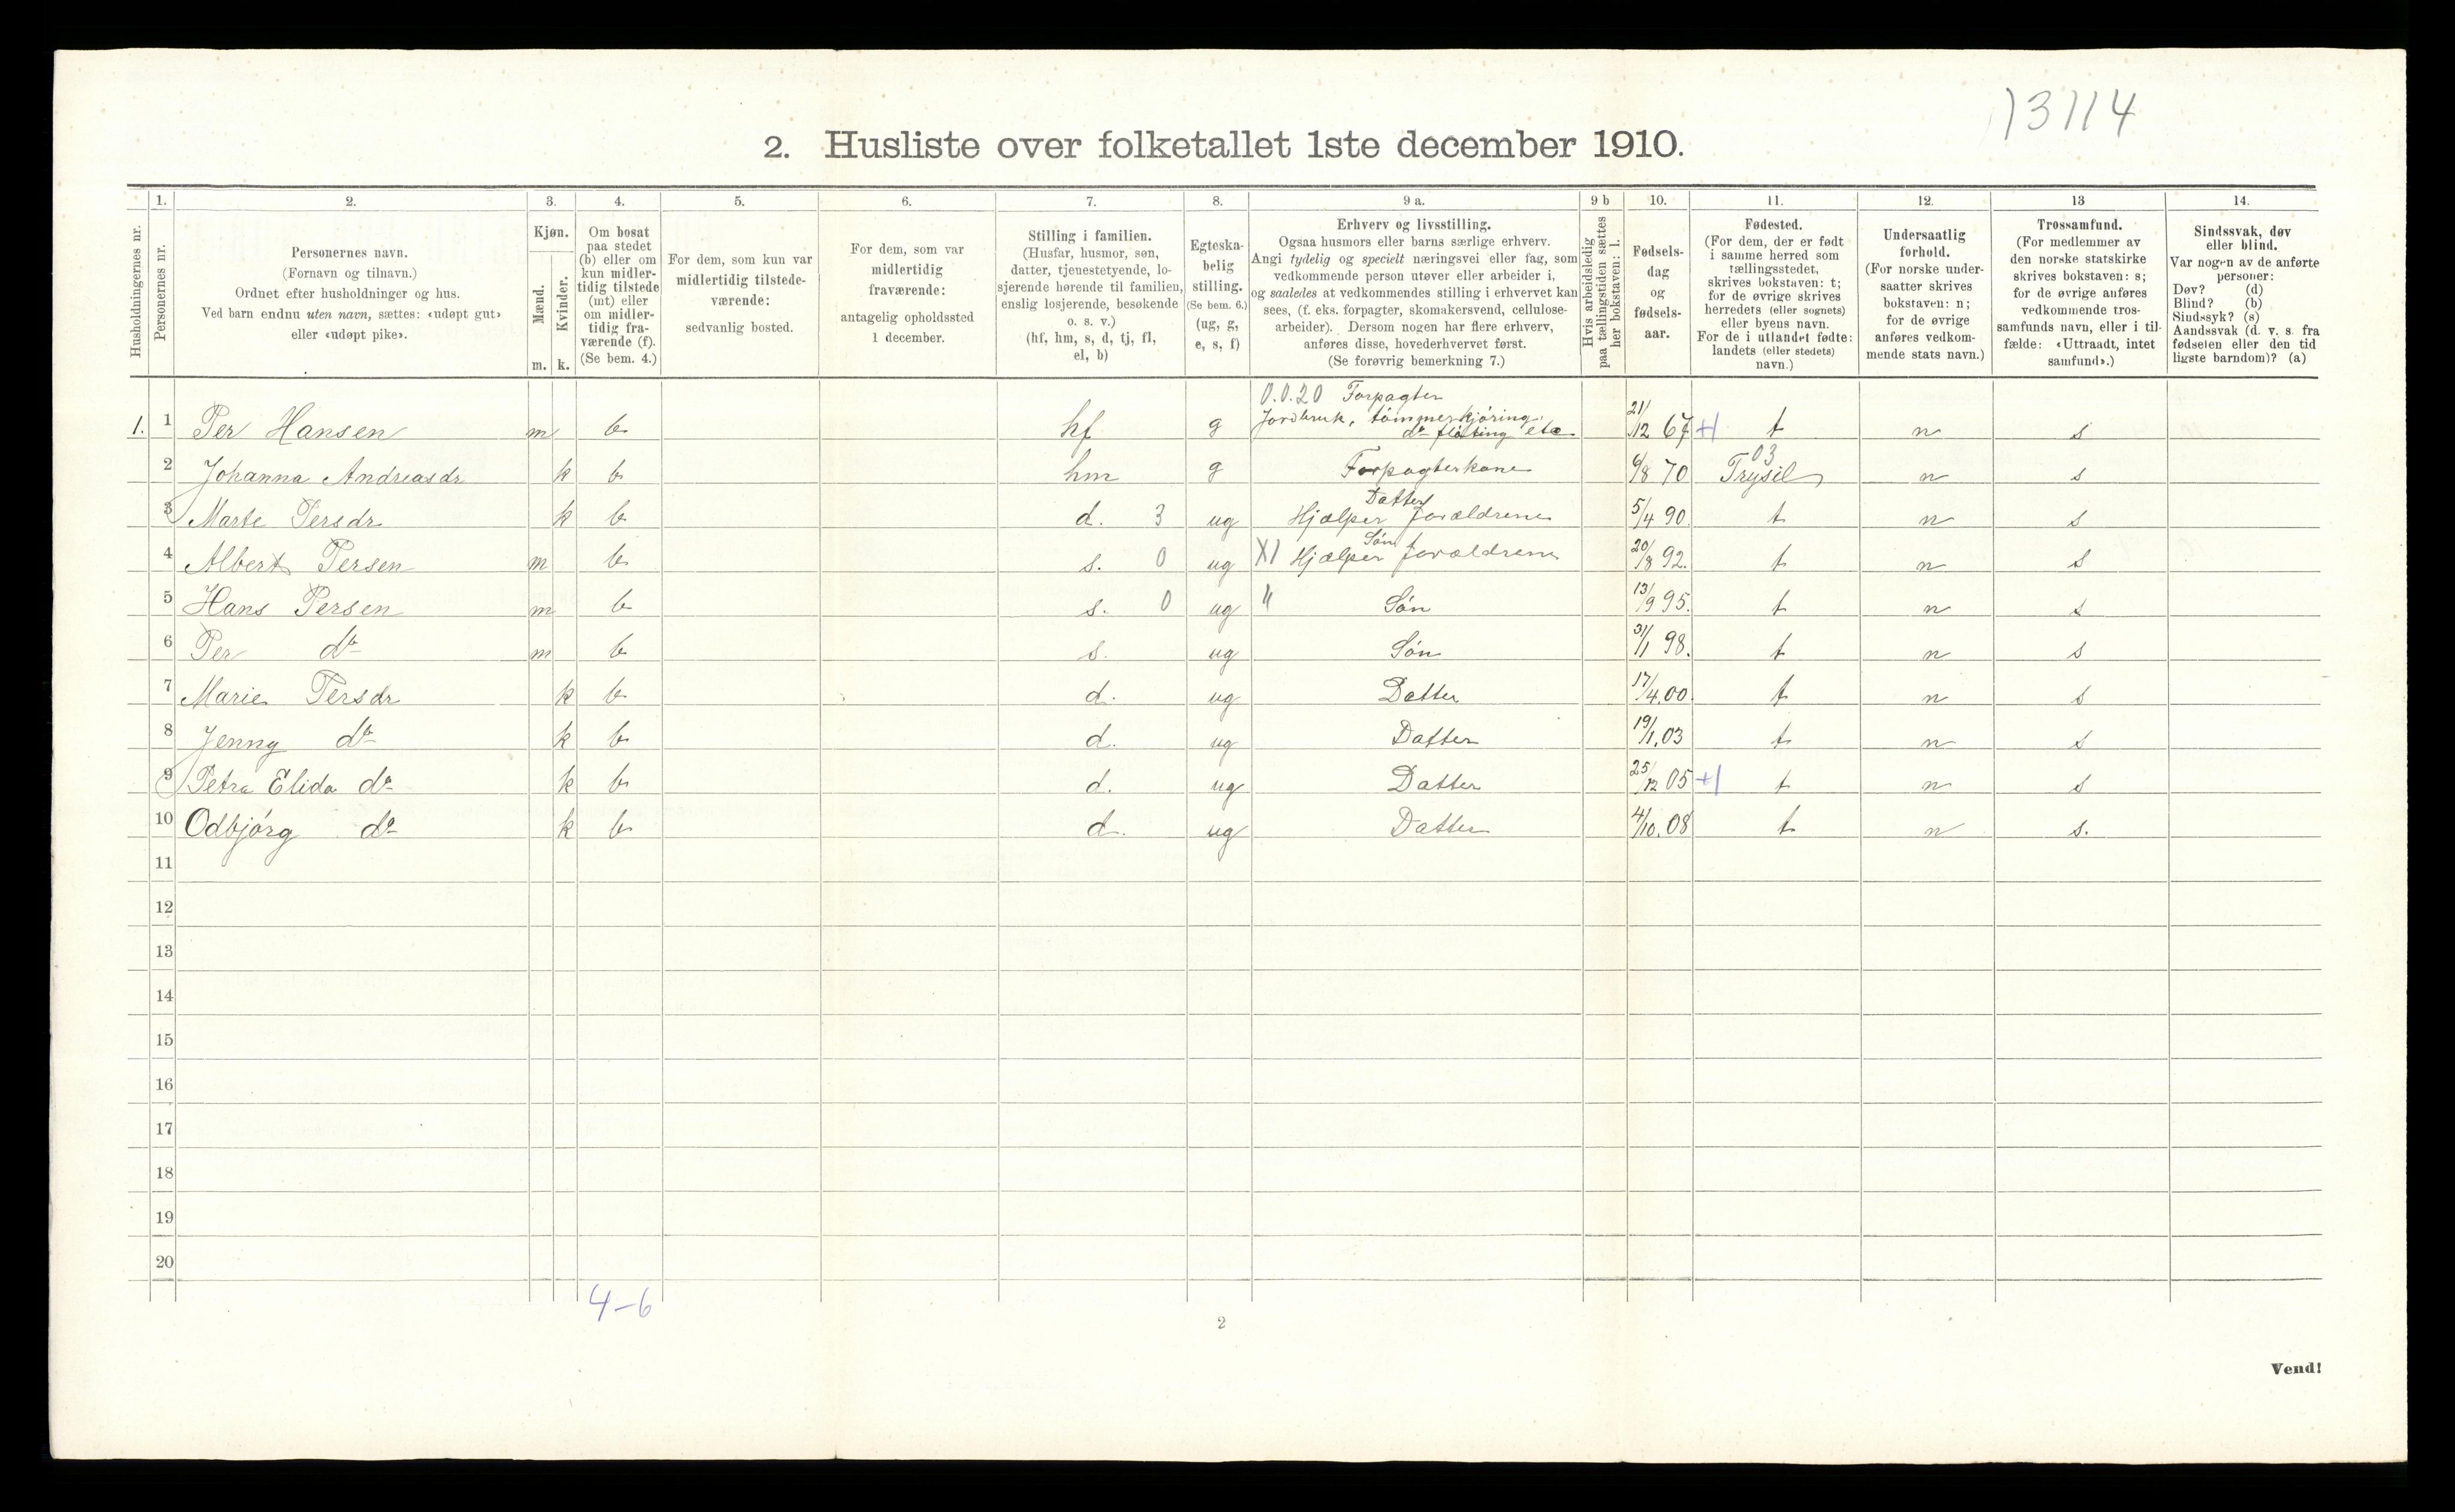 13114
2. Husliste over folketallet 1ste december 1910.
1. 2. 3. 4. 5. 6. 7. 8. 9 a. 9 b 10. 11. 12. 13 14.
Husholdningernes nr.
Personernes nr.
Personernes navn.
(Fornavn og tilnavn.)
Ordnet efter husholdninger og hus.
Ved barn endnu uten navn, sættes: «udøpt gut»
eller «udøpt pike».
Kjøn.
Mænd.
Kvinder.
m. k.
Om bosat
paa stedet
(b) eller om
kun midler-
tidig tilstede
(mt) eller
om midler-
tidig fra-
værende (f).
(Se bem. 4.)
For dem, som kun var
midlertidig tilstede-
værende:
sedvanlig bosted.
For dem, som var
midlertidig
fraværende:
antagelig opholdssted
1 december.
Stilling i familien.
(Husfar, husmor, søn,
datter, tjenestetyende, lo-
sjerende hørende til familien,
enslig losjerende, besøkende
o. s. v.)
(hf, hm, s, d, tj, fl,
el, b)
Egteska-
belig
stilling.
(Se bem. 6.)
(ug, g,
e, s, f)
Erhverv og livsstilling.
Ogsaa husmors eller barns særlige erhverv.
Angi tydelig og specielt næringsvei eller fag, som
vedkommende person utøver eller arbeider i,
og saaledes at vedkommendes stilling i erhvervet kan
sees, (f. eks. forpagter, skomakersvend, cellulose-
arbeider). Dersom nogen har flere erhverv,
anføres disse, hovederhvervet først.
(Se forøvrig bemerkning 7.)
Hvis arbeidsledig
paa tællingstiden sættes
her bokstaven: l.
Fødsels-
dag
og
fødsels-
aar.
Fødested.
(For dem, der er født
i samme herred som
tællingsstedet,
skrives bokstaven: t;
for de øvrige skrives
herredets (eller sognets)
eller byens navn.
For de i utlandet fødte:
landets (eller stedets)
navn.)
Undersaatlig
forhold.
(For norske under-
saatter skrives
bokstaven: n;
for de øvrige
anføres vedkom-
mende stats navn.)
Trossamfund.
(For medlemmer av
den norske statskirke
skrives bokstaven: s;
for de øvrige anføres
vedkommende tros-
samfunds navn, eller i til-
fælde: «Uttraadt, intet
samfund».)
Sindssvak, døv
eller blind.
Var nogen av de anførte
personer:
Døv? (d)
Blind? (b)
Sindssyk? (s)
Aandssvak (d. v. s. fra
fødselen eller den tid
ligste barndom)? (a)
0.0.20 Forpagter
Jordbruk, tømmerkjøring
1. 1 Per Hansen m b hf g do fløtting etc 21/12 67 +1 t n s
03
2 Johanna Andreasdr k b hm g Forpagterkone 6/8 70 Trysil n s
Datter
3 Marte Persdr k b d. 3 ug Hjælper forældrene 5/4 90. t n s
Søn
4 Albert Persen m b s. 0 ug X1 Hjælper forældrene 20/8 92. t n s
5 Hans Persen m b s. 0 ug " Søn 13/9 95. t n s
6 Per do m b s. ug Søn 31/1 98. t n s
7 Marie Persdr k b d. ug Datter 17/4.00. t n s
8 Jenny do k b d. ug Datter 19/1.03 t n s
9 Petra Elida do k b d. ug Datter 25/12 05 +1 t n s
10 Odbjørg do k b d. ug Datter 4/10.08 t n s.
11
12
13
14
15
16
17
18
19
20
4-6
2
Vend!